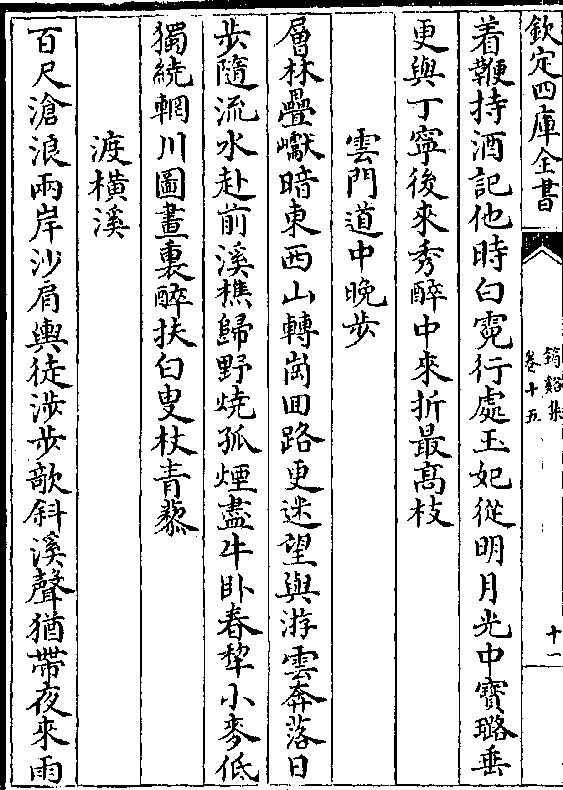 欽定四庫全書
筠谿集
卷十五
十一
着鞭持酒記他時白霓行處王妃從明月光中寳璐垂
更與丁寧後來秀醉中來折最髙枝
雲門道中晩步
層林疊巘暗東西山轉崗回路更迷望與游雲奔落日
歩隨流水赴前溪樵歸野燒孤煙盡牛卧春犂小麥低
獨繞輞川圖畫裏醉扶白叟杖青藜
渡橫溪
百尺滄浪兩岸沙肩輿徒渉歩歌斜溪聲猶帶夜來雨